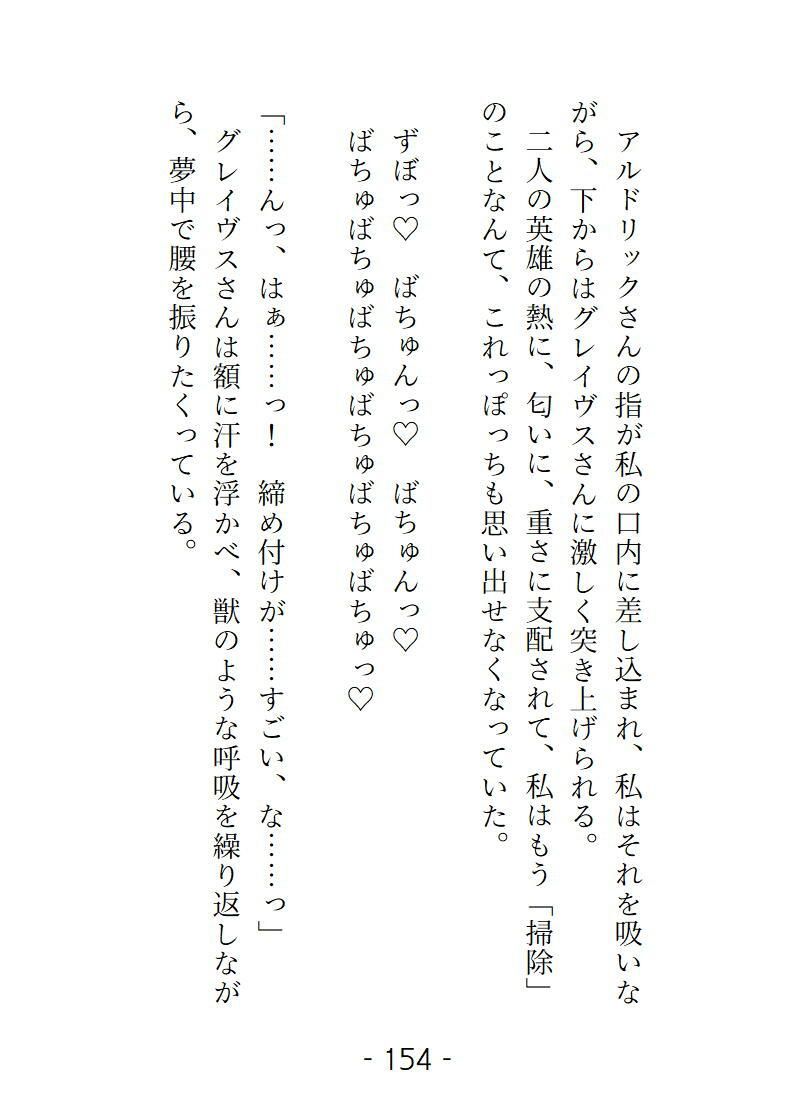 アルドリックさんの指が私の口内に差し込まれ、私はそれを吸いな
がら、下からはグレイヴスさんに激しく突き上げられる。
二人の英雄の熱に、匂いに、重さに支配されて、私はもう「掃除」
のことなんて、これっぽっちも思い出せなくなっていた。
ずぼっ♡　ばちゅんっ♡　ばちゅんっ♡
ばちゅばちゅばちゅばちゅばちゅばちゅっ♡
「……んっ、はぁ……っ！　締め付けが……すごい、な……っ」
グレイヴスさんは額に汗を浮かべ、獣のような呼吸を繰り返しなが
ら、夢中で腰を振りたくっている。
- 154 -